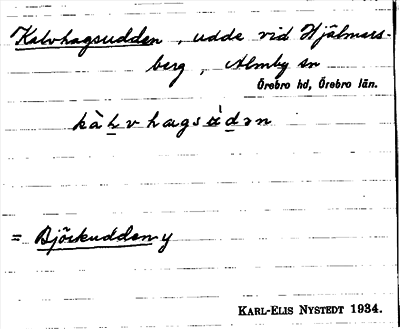 Kalvhagsudden, udde vid Hjälmars-
berg, Almby sn
Örebro hd, Örebro län.
kàlvhagsùdən
= Björkudden y
KARL-ELIS NYSTEDT 1934.